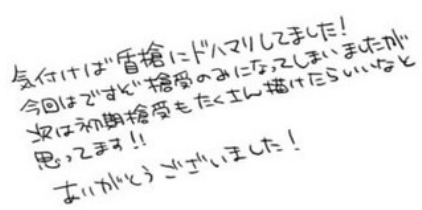 気付けば盾槍にドハマりしてました!
今回はですぞ槍受のみになってしまいましたが
次は初期槍受もたくさん描けたらいいなと
思ってます!!
ありがとうございました!